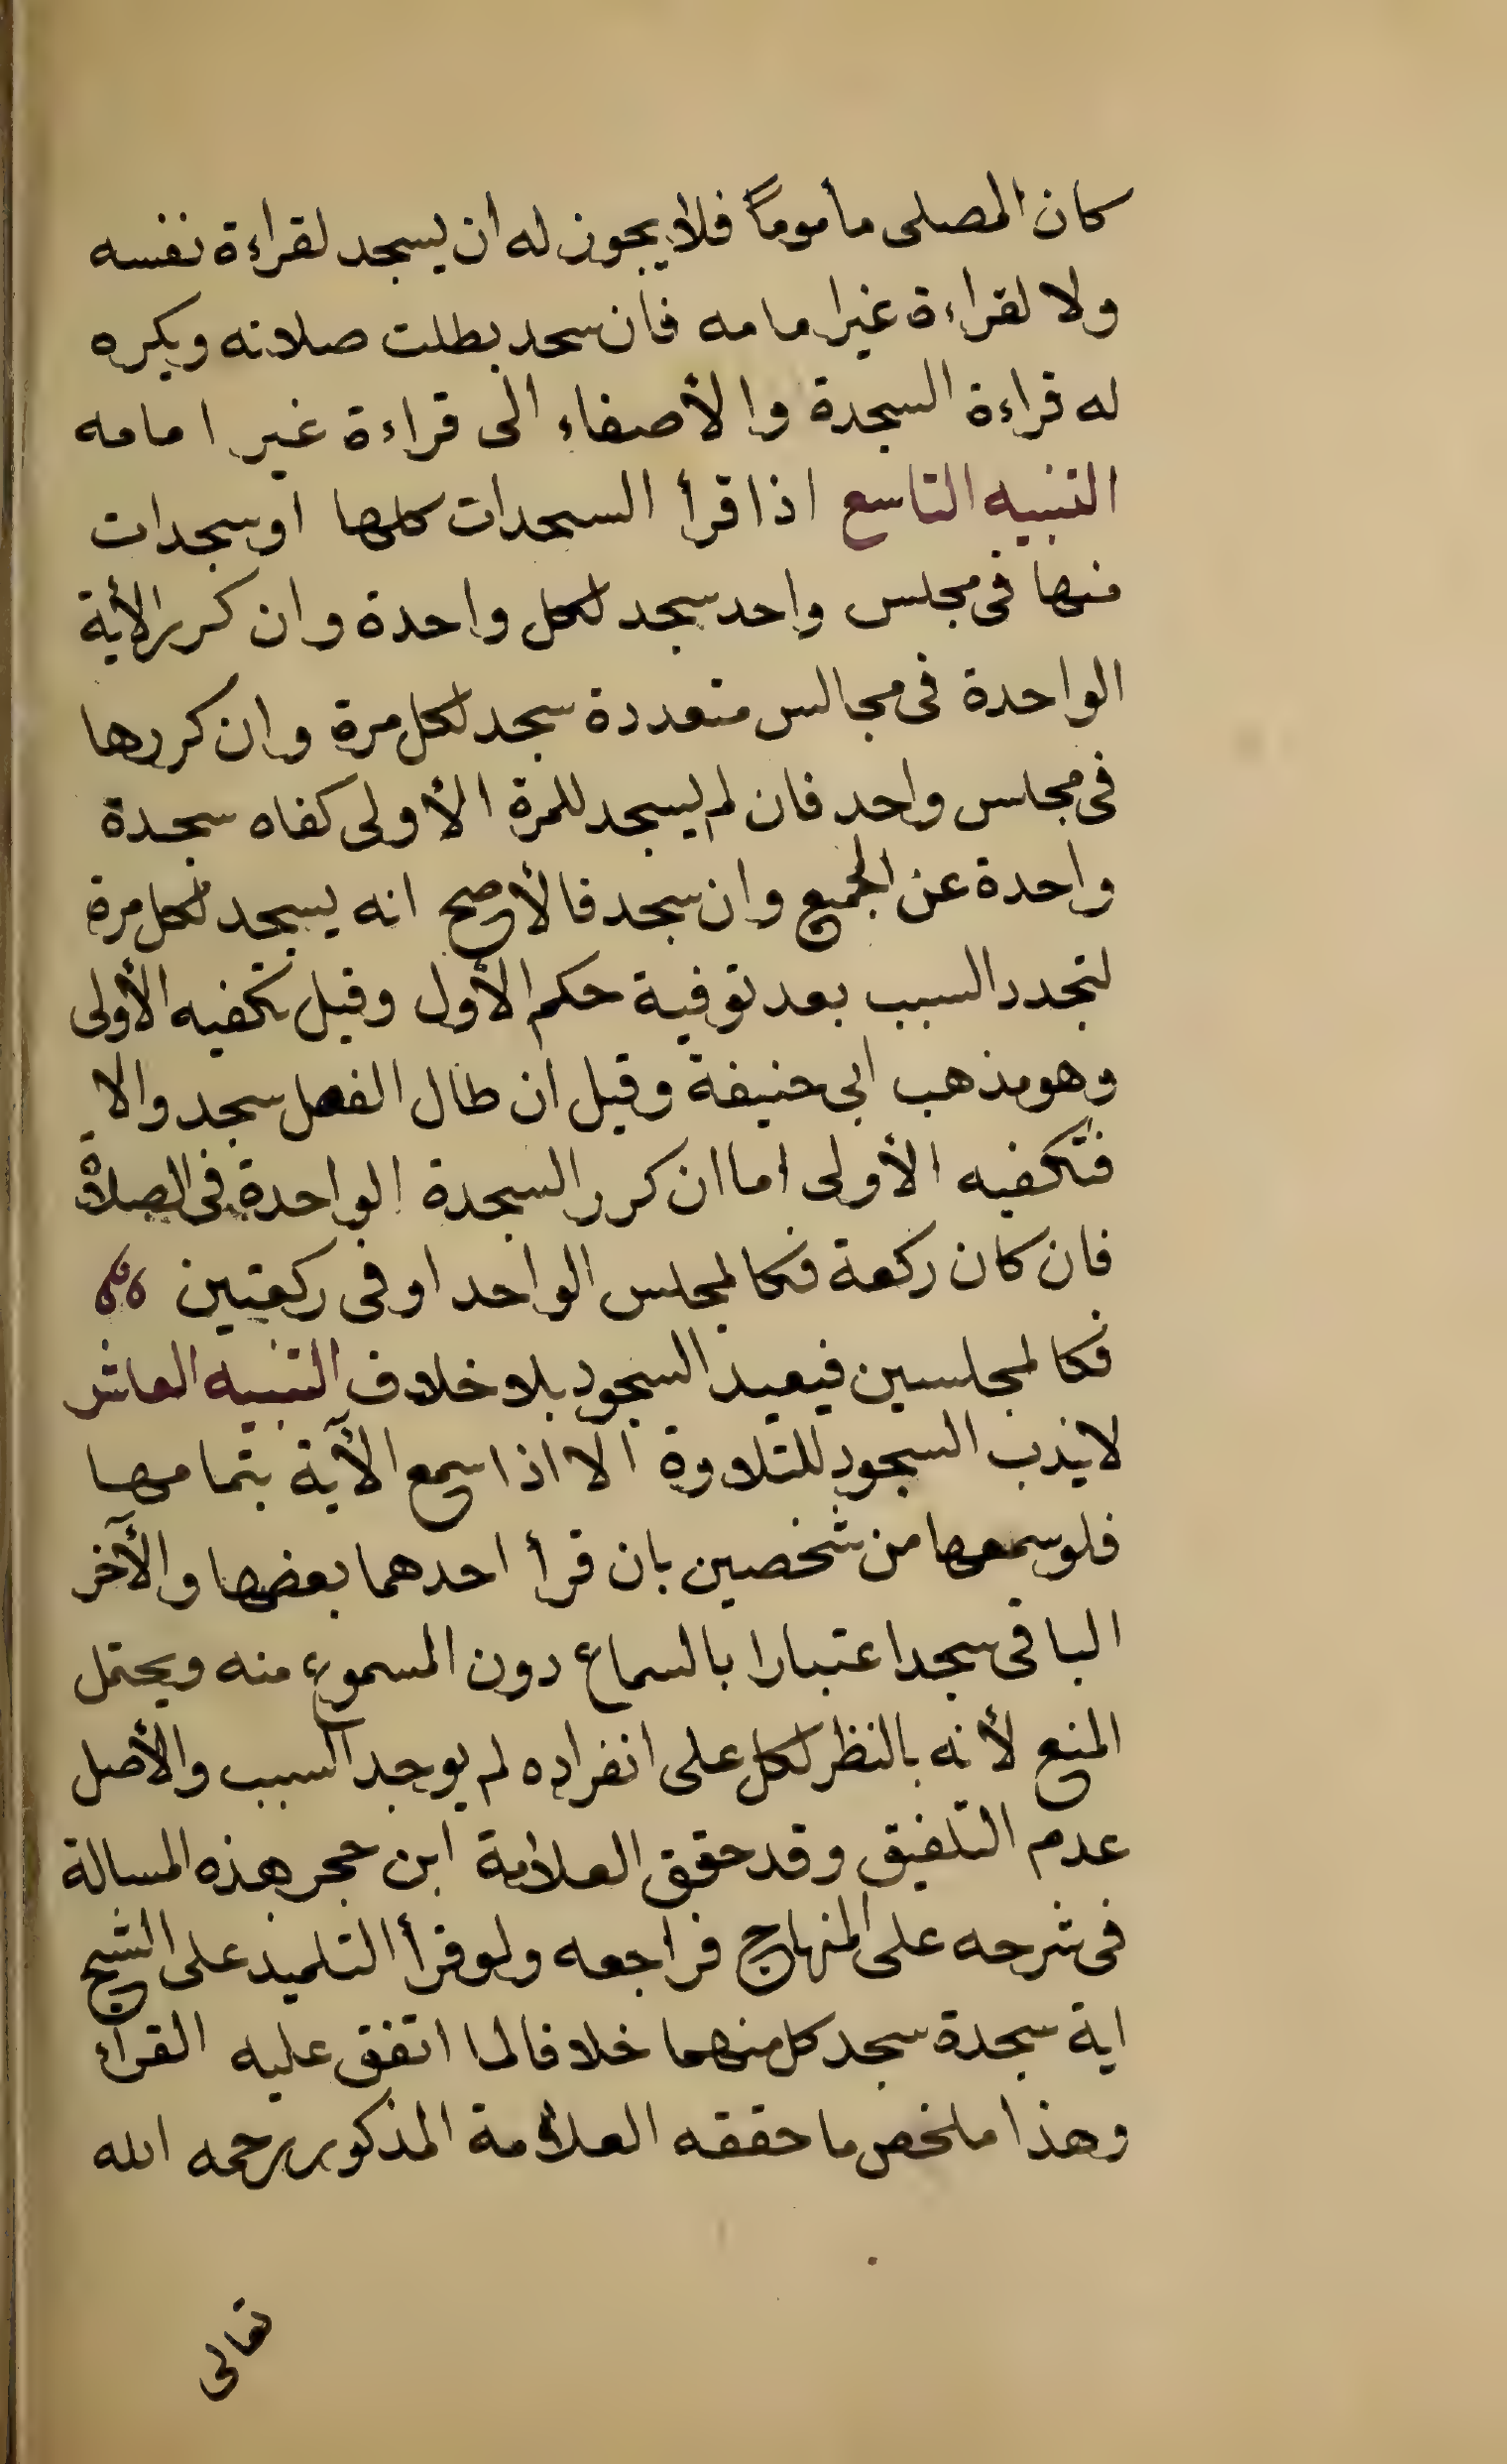 كان المصلى مأموماً فلا يجوز له ان يسجد لقراءة نفسه
ولا لقراءة غير امامه فان سجد بطلت صلاته ويكره
له قراءة السجدة والأصغاء الى قراءة غير امامه
التنبيه التاسع اذا قرأ السجدات كلها او سجدات
منها فى مجلس واحد سجد لكل واحدة وان كرر الأية
الواحدة فى مجالس متعددة سجد لكل مرة وان كررها
فى مجلس واحد فان لم يسجد للمرة الأولى كفاه سجدة
واحدة عن الجميع وان سجد فالأصح انه يسجد لكل مرة
لتجدد السبب بعد توفية حكم الأول وقيل تكفيه الأولى
وهو مذهب ابى حنيفة وقيل ان طال الفصل سجد والا
فتكفيه الأولى اما ان كرر السجدة الواحدة فى الصلاة
فان كان ركعة فكالمجلس الواحد او فى ركعتين
فكالمجلسين فيعيد السجود بلا خلاف التنبيه العاشر
لا يندب السجود للتلاوة الا اذا سمع الآية بتمامها
فلو سمعها من شخصين بان قرأ احدهما بعضها والآخر
الباقى سجد اعتبارا بالسماع دون المسموع منه ويحتمل
المنع لأنه بالنظر لكل على انفراده لم يوجد السبب والأصل
عدم التلفيق وقد حقق العلامة ابن حجر هذه المسالة
فى شرحه على المنهاج فراجعه ولو قرأ التلميذ على الشيخ
اية سجدة سجد كل منهما خلافا لما اتفق عليه القراء
وهذا ملخص ما حققه العلامة المذكور رحمه الله
تعالى